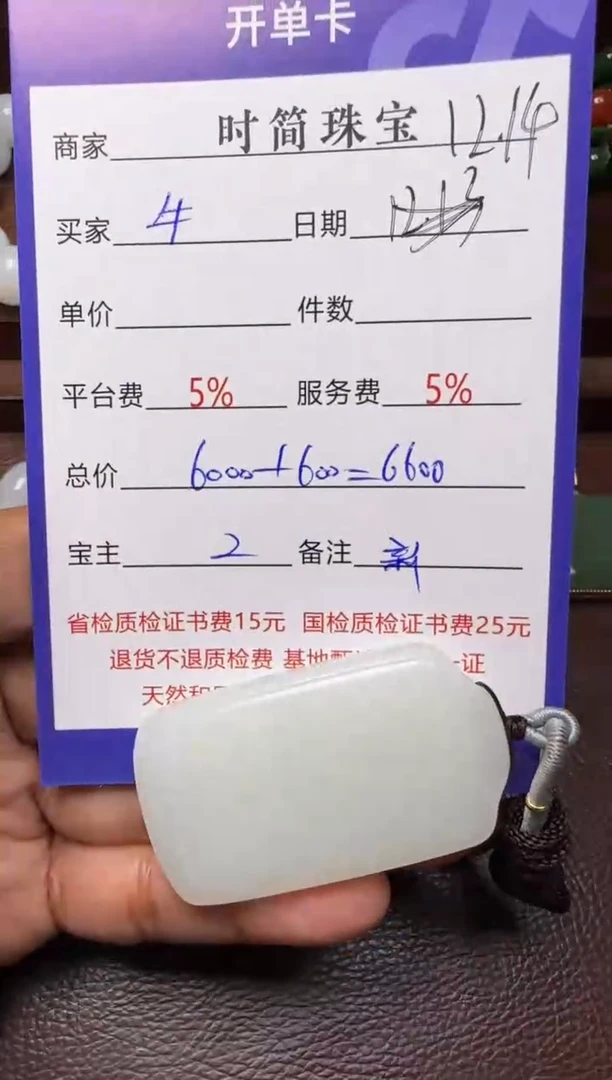 开单卡
商家 时简珠宝 12.14
买家 4 日期 12.13
单价 件数
平台费 5% 服务费 5%
总价 6000+600=6600
宝主 2 备注 新
省检质检证书费15元 国检质检证书费25元
退货不退质检费 基地甄 一证
天然和